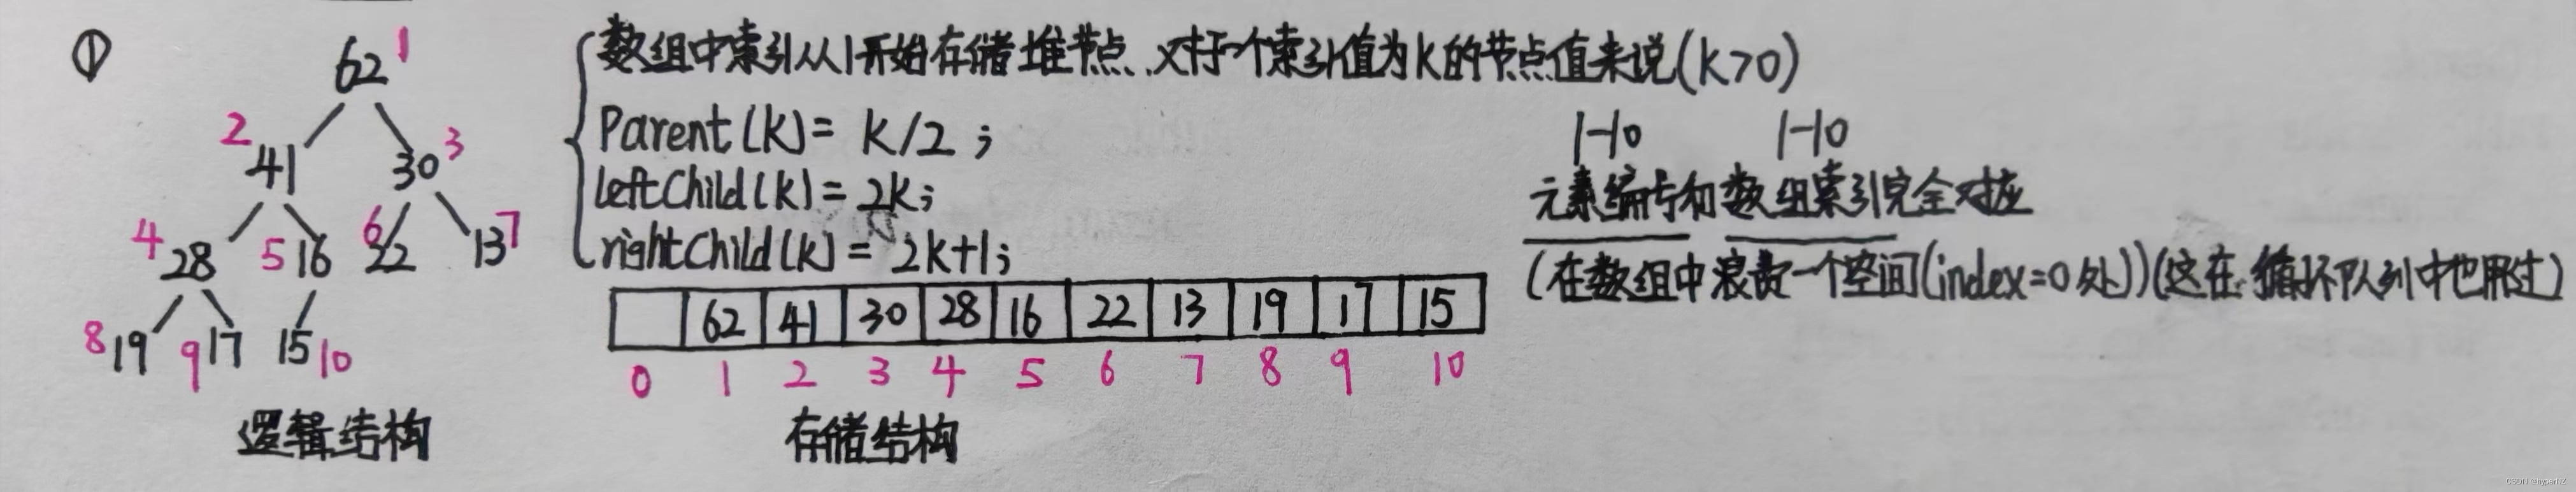 ①
62 1
2 41 30 3
4 28 5 16 6 22 13 7
8 19 9 17 15 10
逻辑结构
数组中索引从1开始存储堆节点、对于一个索引值为K的节点值来说(K>0)
Parent(K)= K/2;
leftChild(K)= 2K;
rightChild(K)= 2K+1;
62 41 30 28 16 22 13 19 17 15
0 1 2 3 4 5 6 7 8 9 10
存储结构
1-10 1-10
元素编号和数组索引完全对应
(在数组中浪费一个空间(index=0处))(这在循环队列中也用过)
CSDN @hyperHZ